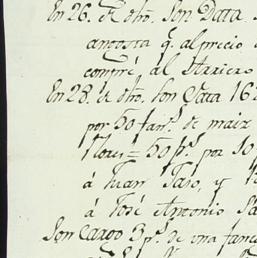 En 26. de dtro. Son Data
angosta q. al precio
compré al Arriero
En 28. de dtro. Son Data 162
por 50 fan.s de maiz
Flores = 50 p.s por 10
á Juan Jaso, y
á José Antonio Sa
Son Cargo 3 p.s de una faneg